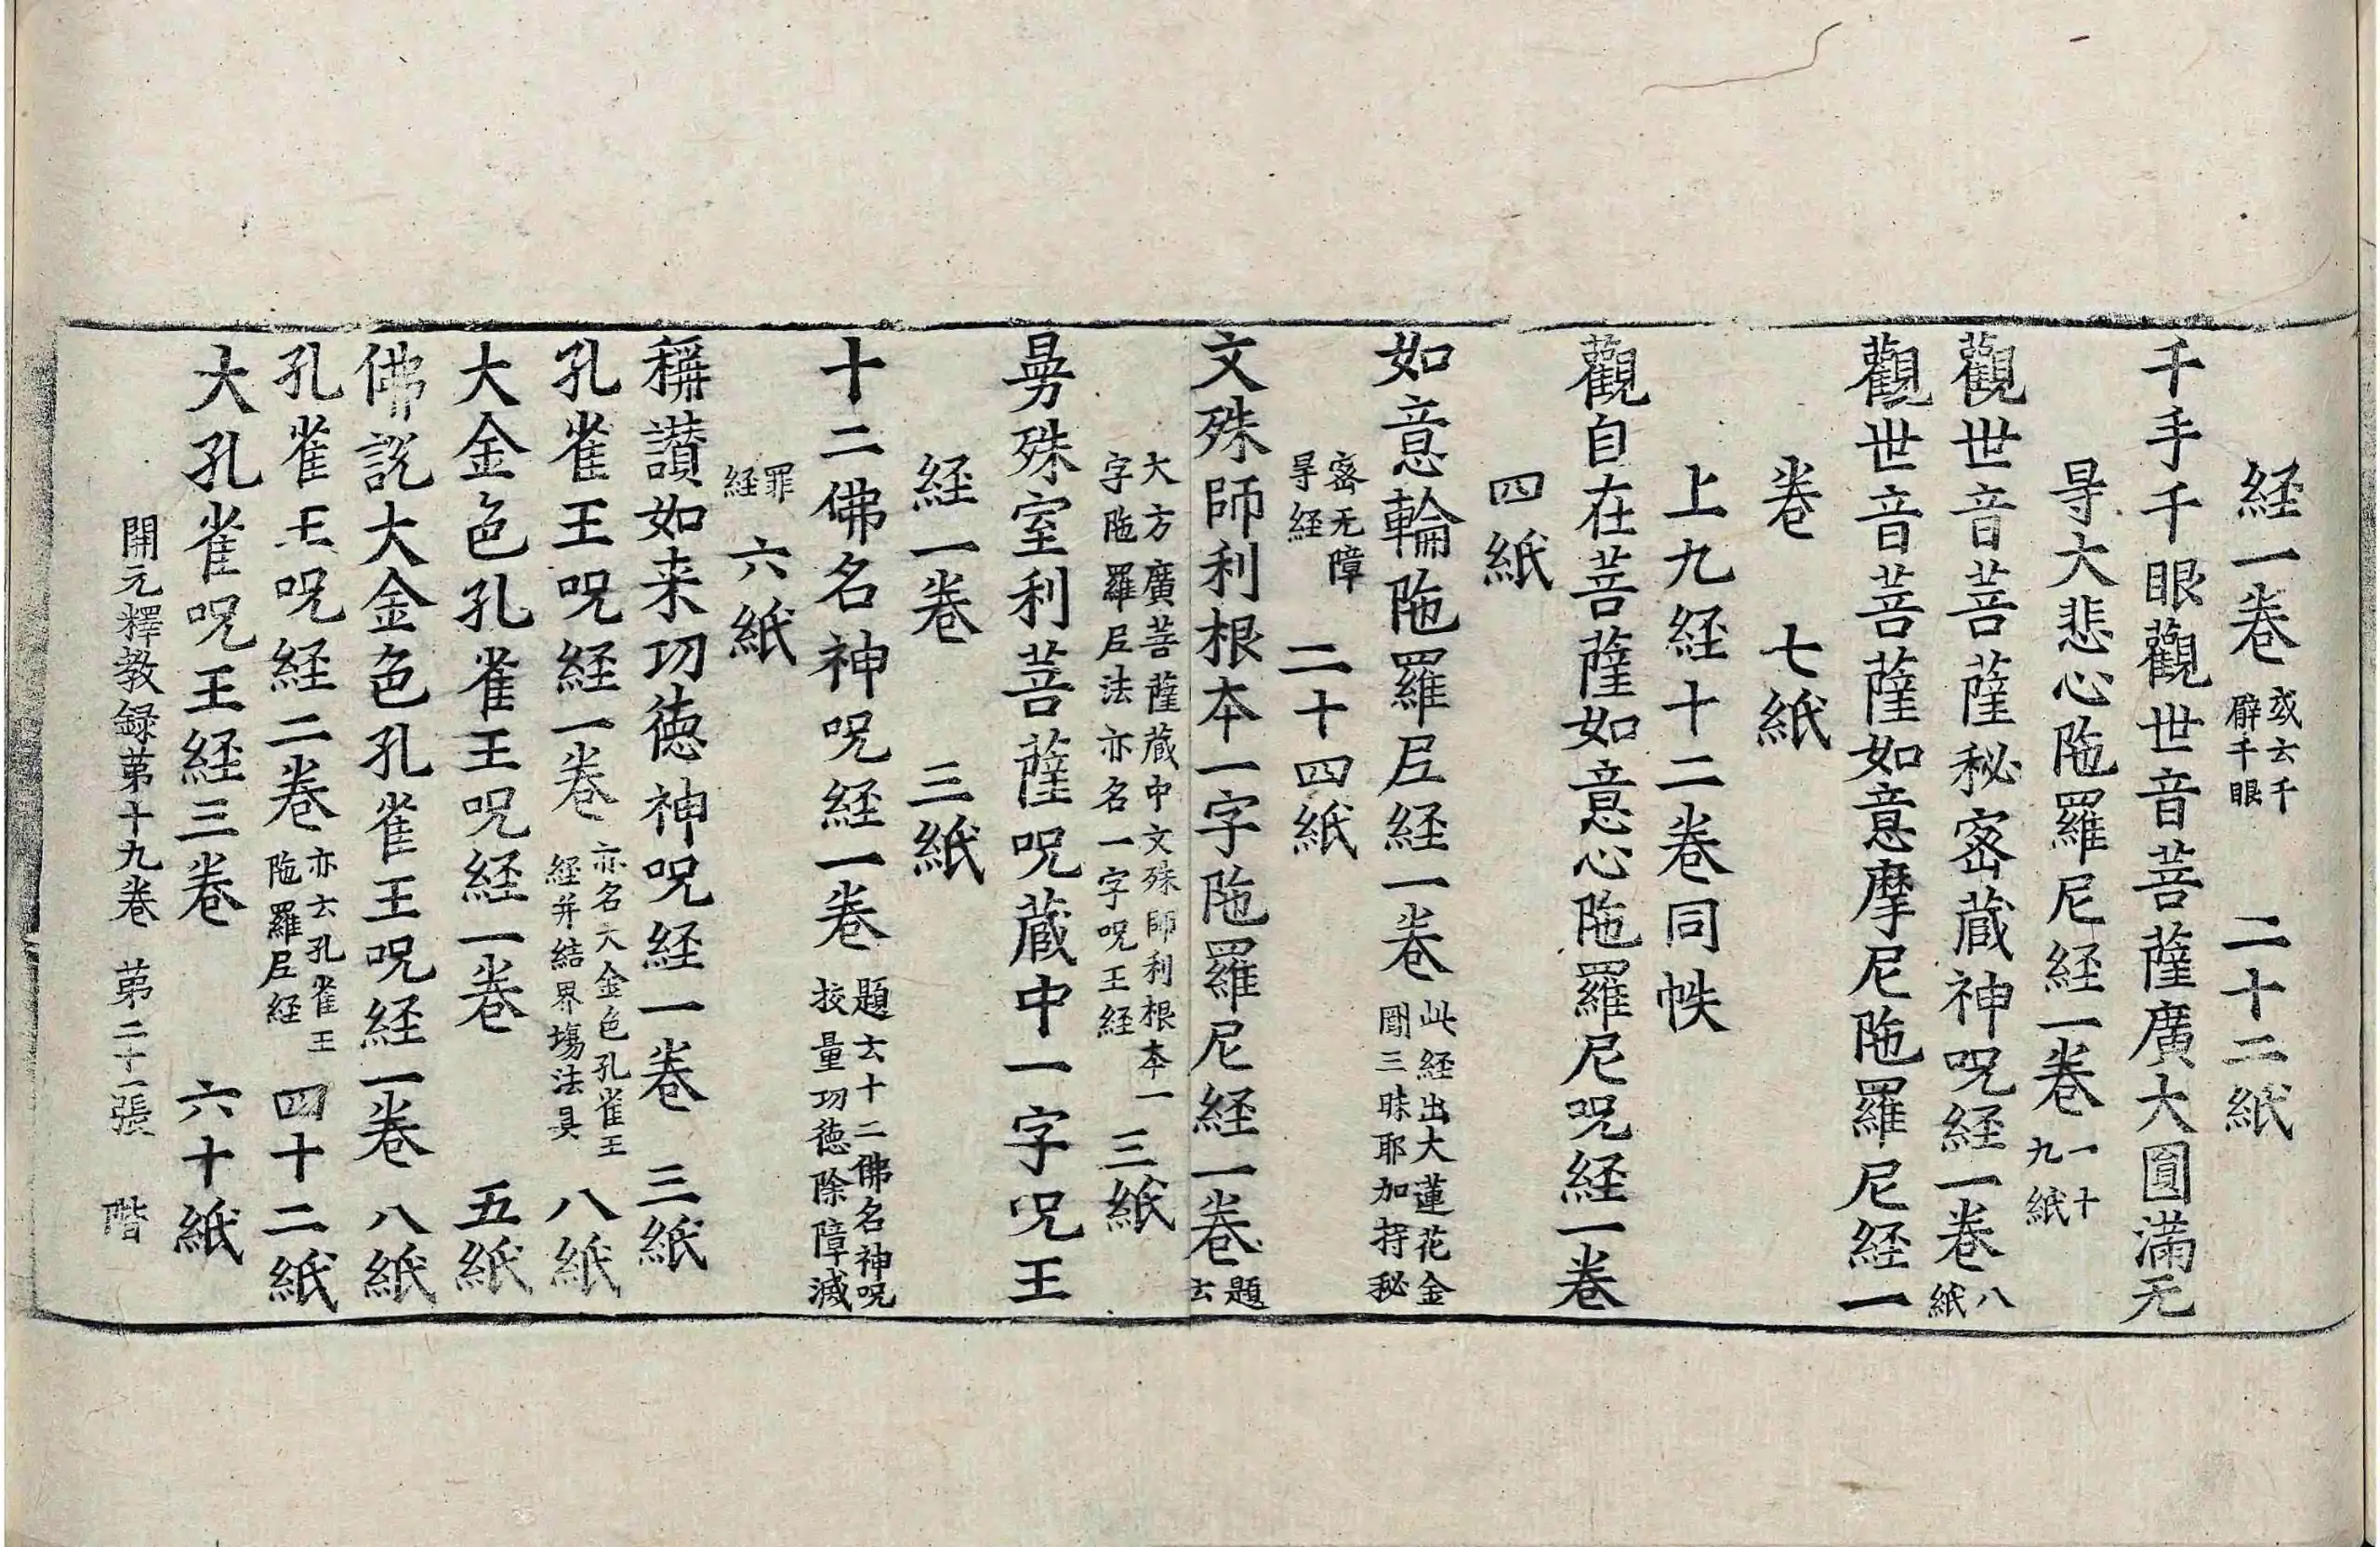 経一卷 或云千臂千眼 二十二紙
千手千眼觀世音菩薩廣大圓滿无
㝵大悲心陁羅尼経一卷 一十九紙
觀世音菩薩秘宻蔵神呪経一卷 八紙
觀世音菩薩如意摩尼陁羅尼経一
卷 七紙
上九経十二卷同帙
觀自在菩薩如意心陁羅尼呪経一卷
四紙
如意輪陁羅尼経一卷 此経出大蓮花金剛三昧耶加持秘
宻无障㝵経 二十四紙
文殊師利根本一字陁羅尼経一卷 題云
大方廣菩薩蔵中文殊師利根本一字陁羅尼法亦名一字呪王経 三紙
曼殊室利菩薩呪蔵中一字呪王
経一卷 三紙
十二佛名神呪経一卷 題云十二佛名神呪挍量功徳除障滅
罪経 六紙
稱讃如来功徳神呪経一卷 三紙
孔雀王呪経一卷 亦名大金色孔雀王経并結界場法具 八紙
大金色孔雀王呪経一卷 五紙
佛說大金色孔雀王呪経一卷 八紙
孔雀王呪経二卷 亦云孔雀王陁羅尼経 四十二紙
大孔雀呪王経三卷 六十紙
開元釋教録苐十九卷 苐二十一張 階